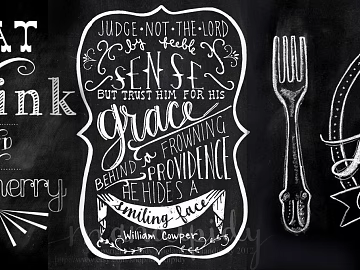 AT
ink
merry
JUDGE·NOT·THE·LORD
by feeble
SENSE
BUT TRUST HIM FOR HIS
grace
BEHIND a FROWNING
PROVIDENCE
HE HIDES A
smiling face
William Cowper